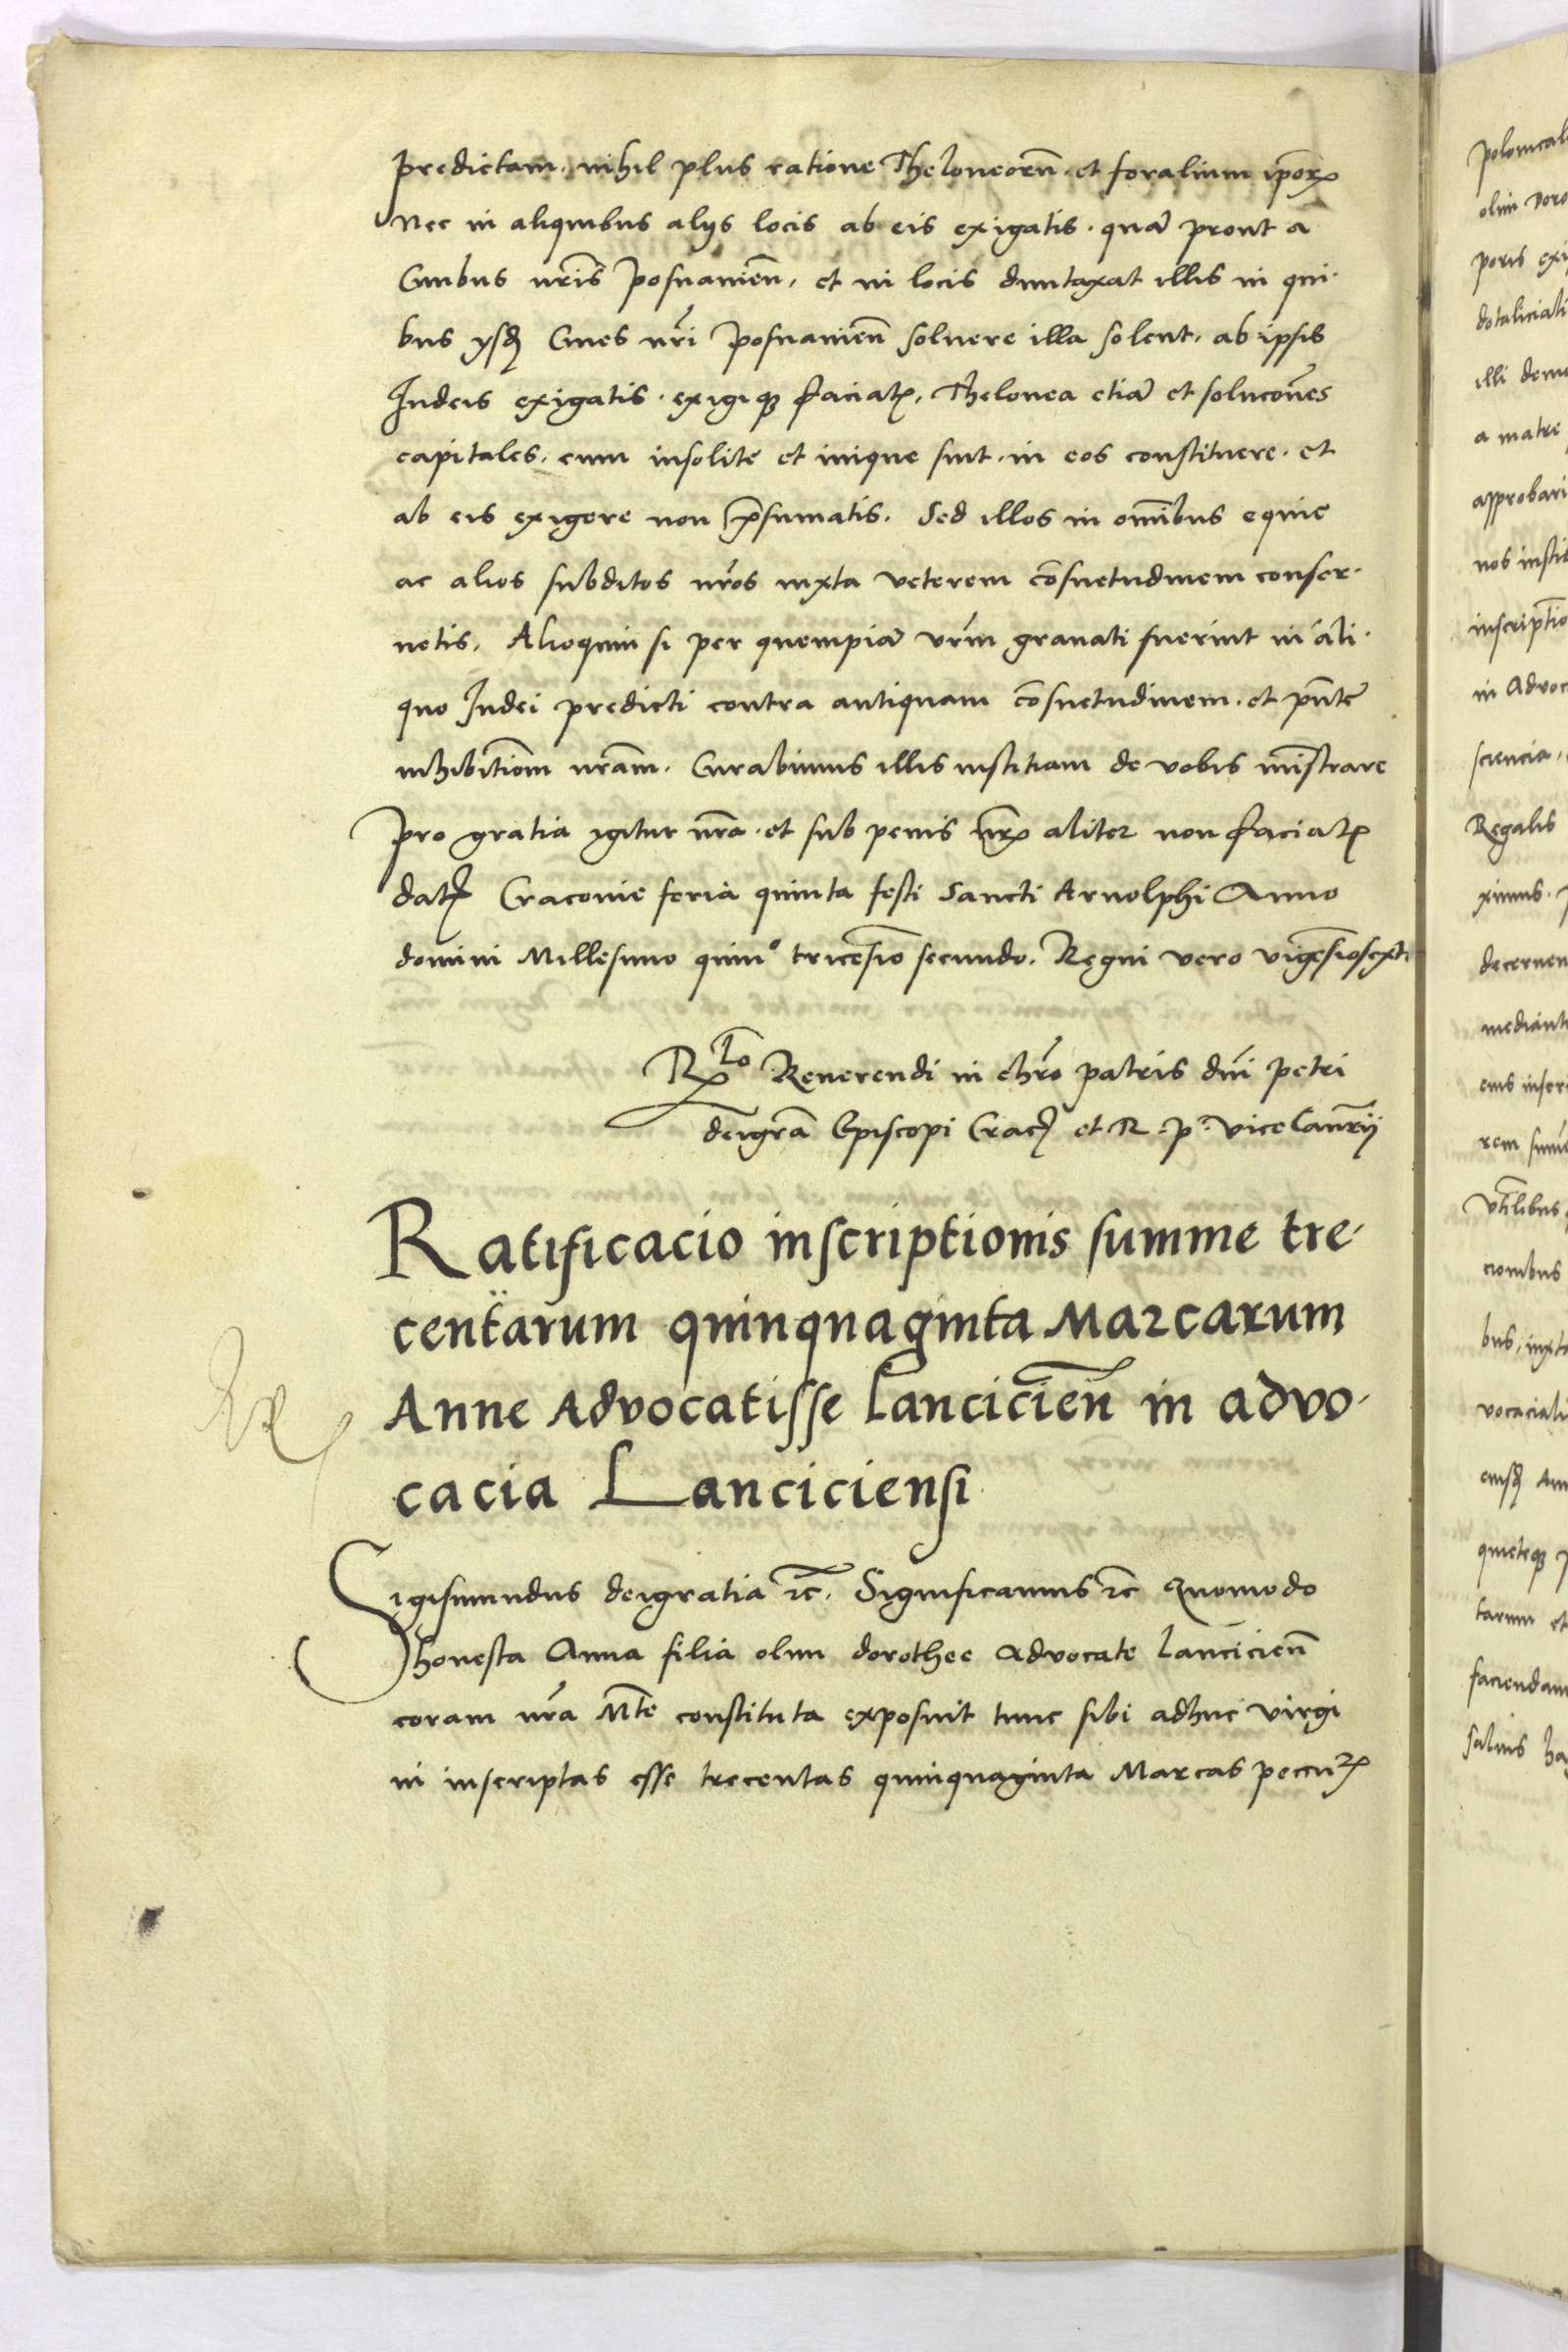 predictam, nihil plus ratione Theloneorũ et foralium ip̃orꝝ
Nec in aliquibus alys locis ab eis exigatis. quã prout a
Ciuibus nr̃is Posnanien̄, et in locis duntaxat illis in qui-
bus ysdē Ciues nr̃i Posnanien̄ soluere illa solent, ab ipsis
Iudeis exigatis. exigiqꝫ faciatꝭ, Thelonea etiã et solucões
capitales, cum insolite et inique sint in eos constituere. et
ab eis exigere non p̃sumatis. Sed illos in om̄ibus eque
ac alios subditos nr̃os iuxta veterem cõsuetudinem conser-
uetis. Alioquin si per quempiã vr̃m grauati fuerint in ali-
quo Iudei predicti contra antiquam cõsuetudinem. et p̃ñte
inhibitiom̃ nr̃am. Curabimus illis iustitiam de vobis min̄istrare
Pro gratia igitur nr̃a. et sub penis nr̃is aliter non faciatꝭ
datꝭ Cracouie feria quinta festi Sancti Arnolphi Anno
domini Millesimo quinᵒ tricesĩo secundo. Regni vero vigesĩosexto
Rlo Reuerendi in chr̃o patris dñi Petri
deigr̃a Episcopi Cracꝭ et R. P. viceCancr̃ij
Ratificacio inscriptionis summe tre-
centarum quinquaginta Marcarum
Anne Advocatisse Lancicien̄ in advo-
cacia Lanciciensi
Sigismundus deigratia ꝛc̃. Significamus ꝛc̃ Quomodo
honesta Anna filia olim dorothee advocate Lancicien̄
coram nr̃a Mte constituta exposuit tunc sibi adhuc virgi
ni inscriptas esse trecentas quinquaginta Marcas pecuꝝ
polonical
olim Doro
poris
dotaliciati
illi
a matre
approbari
nos
inscriptio
in Advoc
sciencia,
Regalis
ximus.
decernen
mediant
eius inser
rem
vtilibus
cionibus
bus, iuxta
vocaciali
eiusdē An
quieteqꝫ
tarum et
faciendam
saluis